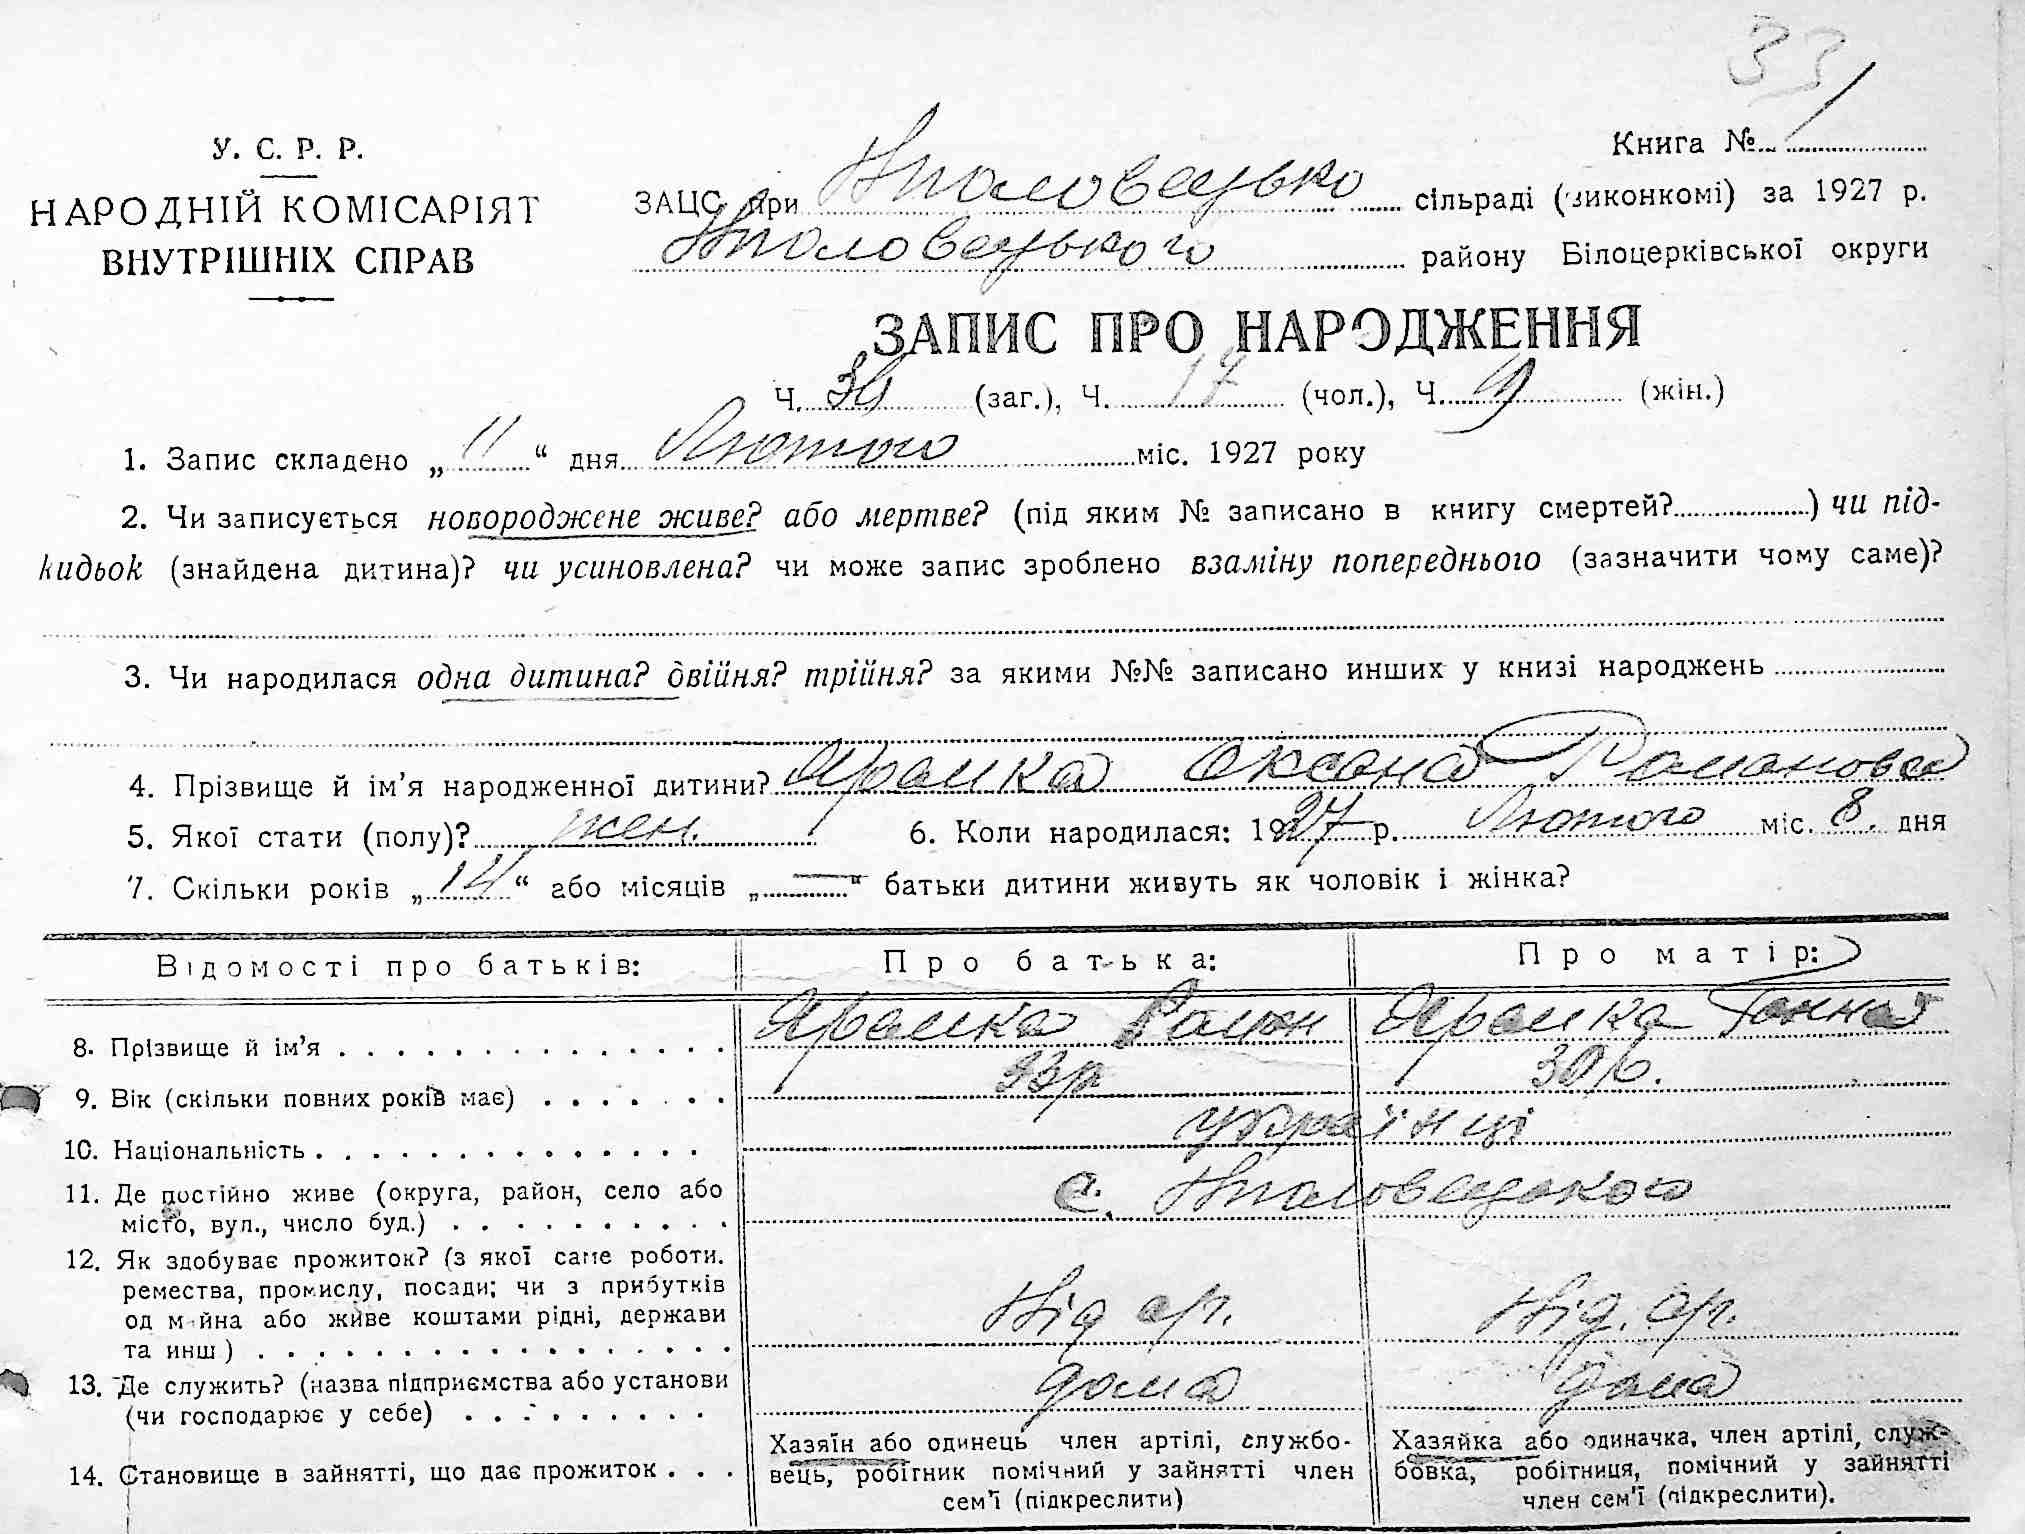 33
У. С. Р. Р.
НАРОДНІЙ КОМІСАРІЯТ
ВНУТРІШНІХ СПРАВ
Книга №
ЗАЦС при сільраді (виконкомі) за 1927 р.
району Білоцерківської округи
ЗАПИС ПРО НАРОДЖЕННЯ
Ч. (заг.), Ч. 17 (чол.), Ч. (жін.)
1. Запис складено „ 11 “ дня Лютого міс. 1927 року
2. Чи записується новороджене живе? або мертве? (під яким № записано в книгу смертей? ) чи під-
кидьок (знайдена дитина)? чи усиновлена? чи може запис зроблено взаміну попереднього (зазначити чому саме)?
3. Чи народилася одна дитина? двійня? трійня? за якими №№ записано инших у книзі народжень
4. Прізвище й ім’я народженної дитини? Яремка Оксана Романовна
5. Якої стати (полу)? жен. 6. Коли народилася: 1927 р. Лютого міс. 8. дня
7. Скільки років „ 14 “ або місяців „ — “ батьки дитини живуть як чоловік і жінка?
Відомості про батьків: Про батька: Про матір:
8. Прізвище й ім’я Яремка Роман Яремка Ганна
9. Вік (скільки повних років має) 33р 30р.
10. Національність українці
11. Де постійно живе (округа, район, село або
місто, вул., число буд.) с.
12. Як здобуває прожиток? (з якої саме роботи.
ремества, промислу, посади; чи з прибутків
од майна або живе коштами рідні, держави
та инш ) Від гр. Від. гр.
13. Де служить? (назва підприємства або установи
(чи господарює у себе) дома дома
14. Становище в зайнятті, що дає прожиток
Хазяїн або одинець член артілі, службо-
вець, робітник помічний у зайнятті член
сем’ї (підкреслити)
Хазяйка або одиначка, член артілі, служ-
бовка, робітниця, помічний у зайнятті
член сем’ї (підкреслити).